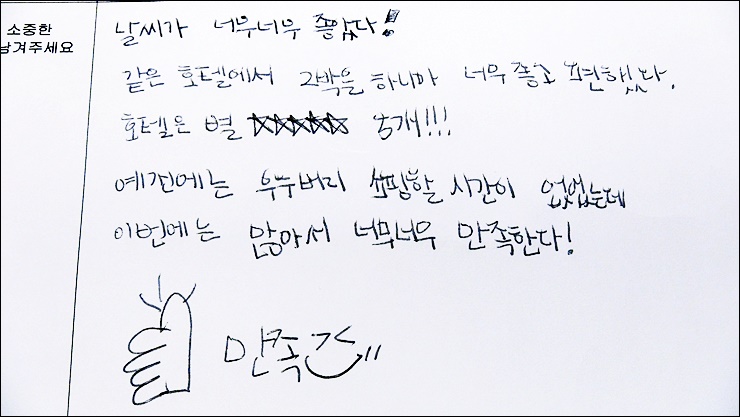 소중한
남겨주세요
날씨가 너무너무 좋았다!
같은 호텔에서 2박을 하니까 너무 좋고 편했다.
호텔은 별 ☆☆☆☆☆ 5개!!!
예전에는 우누버리 쇼핑할 시간이 없었는데
이번에는 많아서 너무너무 만족한다!
만족